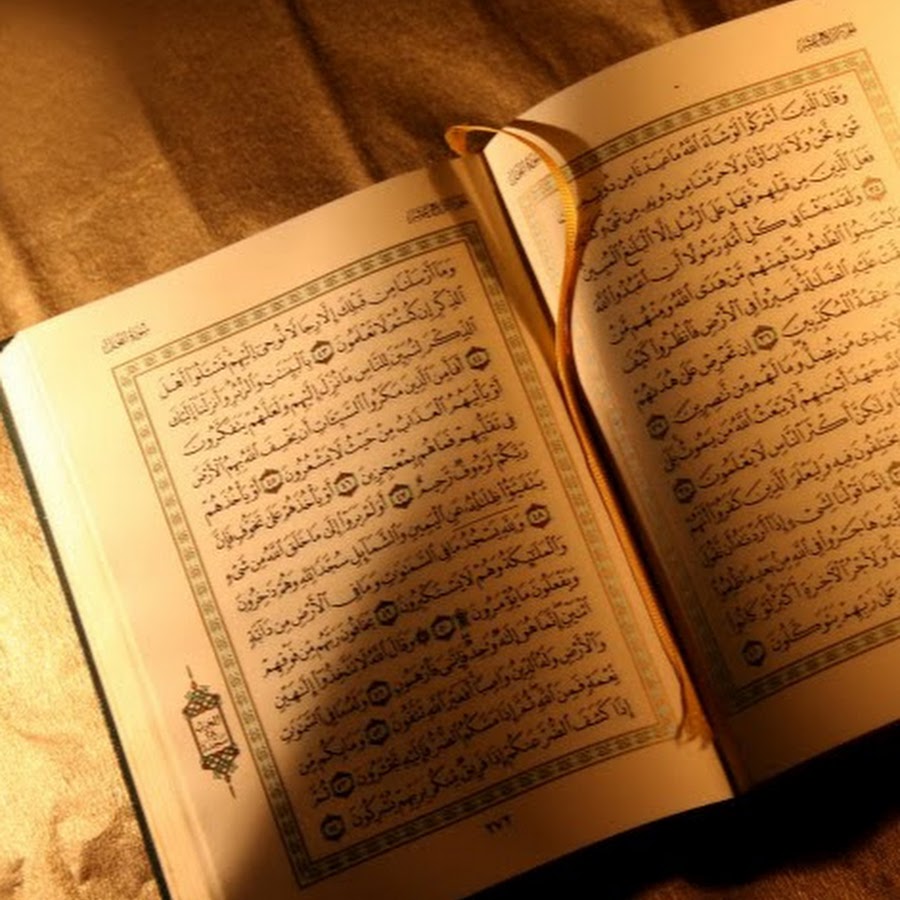 وَقَالَ ٱلَّذِينَ أَشْرَكُوا۟ لَوْ شَآءَ ٱللَّهُ مَا عَبَدْنَا مِن دُونِهِۦ
شَىْءٍ نَّحْنُ وَلَآ ءَابَآؤُنَا وَلَا حَرَّمْنَا مِن دُونِهِۦ مِن شَىْءٍ
فَعَلَ ٱلَّذِينَ مِن قَبْلِهِمْ فَهَلْ عَلَى ٱلرُّسُلِ إِلَّا ٱلْبَلَـٰغُ ٱلْمُبِينُ
٣٥ وَلَقَدْ بَعَثْنَا فِى كُلِّ أُمَّةٍ رَّسُولًا أَنِ ٱعْبُدُوا۟ ٱللَّهَ
ٱلطَّـٰغُوتَ فَمِنْهُم مَّنْ هَدَى ٱللَّهُ وَمِنْهُم مَّنْ
عَلَيْهِ ٱلضَّلَـٰلَةُ فَسِيرُوا۟ فِى ٱلْأَرْضِ فَٱنظُرُوا۟ كَيْفَ
عَـٰقِبَةُ ٱلْمُكَذِّبِينَ ٣٦ إِن تَحْرِصْ عَلَىٰ هُدَىٰهُمْ
يَهْدِى مَن يُضِلُّ وَمَا لَهُم مِّن نَّـٰصِرِينَ ٣٧
جَهْدَ أَيْمَـٰنِهِمْ لَا يَبْعَثُ ٱللَّهُ مَن يَمُوتُ بَلَىٰ
وَلَـٰكِنَّ أَكْثَرَ ٱلنَّاسِ لَا يَعْلَمُونَ ٣٨
يَخْتَلِفُونَ فِيهِ وَلِيَعْلَمَ ٱلَّذِينَ كَفَرُوٓا۟ أَنَّهُمْ
إِنَّمَا قَوْلُنَا لِشَىْءٍ إِذَآ أَرَدْنَـٰهُ أَن نَّقُولَ
هَاجَرُوا۟ فِى ٱللَّهِ مِنۢ بَعْدِ مَا ظُلِمُوا۟
وَلَأَجْرُ ٱلْـَٔاخِرَةِ أَكْبَرُ لَوْ كَانُوا۟
وَعَلَىٰ رَبِّهِمْ يَتَوَكَّلُونَ ٤٢
سُورَةُ النَّحْلِ
وَمَآ أَرْسَلْنَا مِن قَبْلِكَ إِلَّا رِجَالًا نُّوحِىٓ إِلَيْهِمْ فَسْـَٔلُوٓا۟ أَهْلَ
ٱلذِّكْرِ إِن كُنتُمْ لَا تَعْلَمُونَ ٤٣ بِٱلْبَيِّنَـٰتِ وَٱلزُّبُرِ وَأَنزَلْنَآ إِلَيْكَ
ٱلذِّكْرَ لِتُبَيِّنَ لِلنَّاسِ مَا نُزِّلَ إِلَيْهِمْ وَلَعَلَّهُمْ يَتَفَكَّرُونَ
٤٤ أَفَأَمِنَ ٱلَّذِينَ مَكَرُوا۟ ٱلسَّيِّـَٔاتِ أَن يَخْسِفَ ٱللَّهُ بِهِمُ ٱلْأَرْضَ
أَوْ يَأْتِيَهُمُ ٱلْعَذَابُ مِنْ حَيْثُ لَا يَشْعُرُونَ ٤٥ أَوْ يَأْخُذَهُمْ
فِى تَقَلُّبِهِمْ فَمَا هُم بِمُعْجِزِينَ ٤٦ أَوْ يَأْخُذَهُمْ عَلَىٰ تَخَوُّفٍ فَإِنَّ
رَبَّكُمْ لَرَءُوفٌ رَّحِيمٌ ٤٧ أَوَلَمْ يَرَوْا۟ إِلَىٰ مَا خَلَقَ ٱللَّهُ مِن شَىْءٍ
يَتَفَيَّؤُا۟ ظِلَـٰلُهُۥ عَنِ ٱلْيَمِينِ وَٱلشَّمَآئِلِ سُجَّدًا لِّلَّهِ وَهُمْ دَٰخِرُونَ
٤٨ وَلِلَّهِ يَسْجُدُ مَا فِى ٱلسَّمَـٰوَٰتِ وَمَا فِى ٱلْأَرْضِ مِن دَآبَّةٍ
وَٱلْمَلَـٰٓئِكَةُ وَهُمْ لَا يَسْتَكْبِرُونَ ٤٩ يَخَافُونَ رَبَّهُم مِّن فَوْقِهِمْ
وَيَفْعَلُونَ مَا يُؤْمَرُونَ ۩ ٥٠ ۞ وَقَالَ ٱللَّهُ لَا تَتَّخِذُوٓا۟ إِلَـٰهَيْنِ
ٱثْنَيْنِ إِنَّمَا هُوَ إِلَـٰهٌ وَٰحِدٌ فَإِيَّـٰىَ فَٱرْهَبُونِ ٥١ وَلَهُۥ مَا فِى ٱلسَّمَـٰوَٰتِ
وَٱلْأَرْضِ وَلَهُ ٱلدِّينُ وَاصِبًا أَفَغَيْرَ ٱللَّهِ تَتَّقُونَ ٥٢ وَمَا بِكُم مِّن
نِّعْمَةٍ فَمِنَ ٱللَّهِ ثُمَّ إِذَا مَسَّكُمُ ٱلضُّرُّ فَإِلَيْهِ تَجْـَٔرُونَ ٥٣ ثُمَّ
إِذَا كَشَفَ ٱلضُّرَّ عَنكُمْ إِذَا فَرِيقٌ مِّنكُم بِرَبِّهِمْ يُشْرِكُونَ ٥٤
٢٧٢